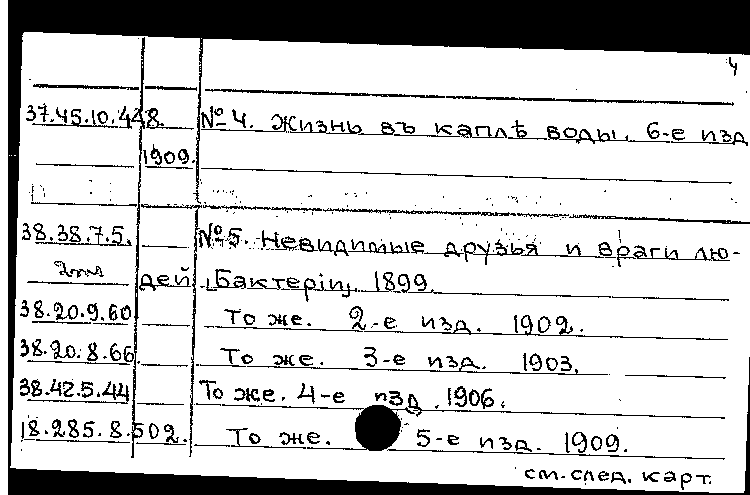 4
37.45.10.448. №4. Жизнь въ каплѣ воды. 6-е изд
1909.
38.38.7.5. №5. Невидимые друзья и враги лю-
дей [Бактеріи], 1899.
38.20.9.60 То же. 2-е изд. 1902.
38.20.8.66 То же. 3-е изд. 1903.
38.42.5.44 То же. 4-е изд. 1906.
18.285.8.502. То же. 5-е изд. 1909.
см. след. карт.